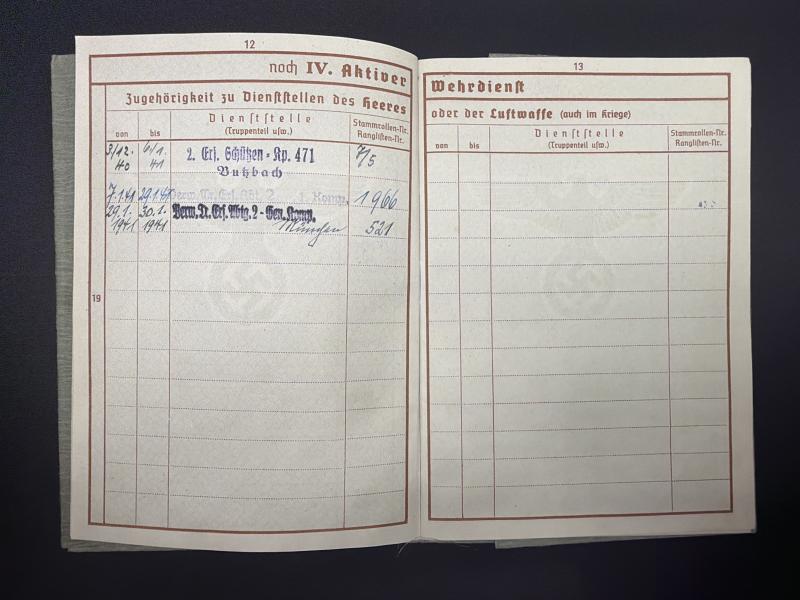 12
noch IV. Aktiver
Zugehörigkeit zu Dienststellen des Heeres
von
bis
Dienststelle
(Truppenteil usw.)
Stammrollen-Nr.
Ranglisten-Nr.
3/12. 40
6/1. 41
2. Ers. Schützen-Kp. 471
Butzbach
7/5
7.1.41 29.1.41 Verw. Tr. Ers. Abt. 2 1. Komp. 1966
29.1. 1941
30.1. 1941
Verw. Tr. Ers. Abtg. 2 - Gen. Komp.
München
521
19
13
Wehrdienst
oder der Luftwaffe (auch im Kriege)
von
bis
Dienststelle
(Truppenteil usw.)
Stammrollen-Nr.
Ranglisten-Nr.